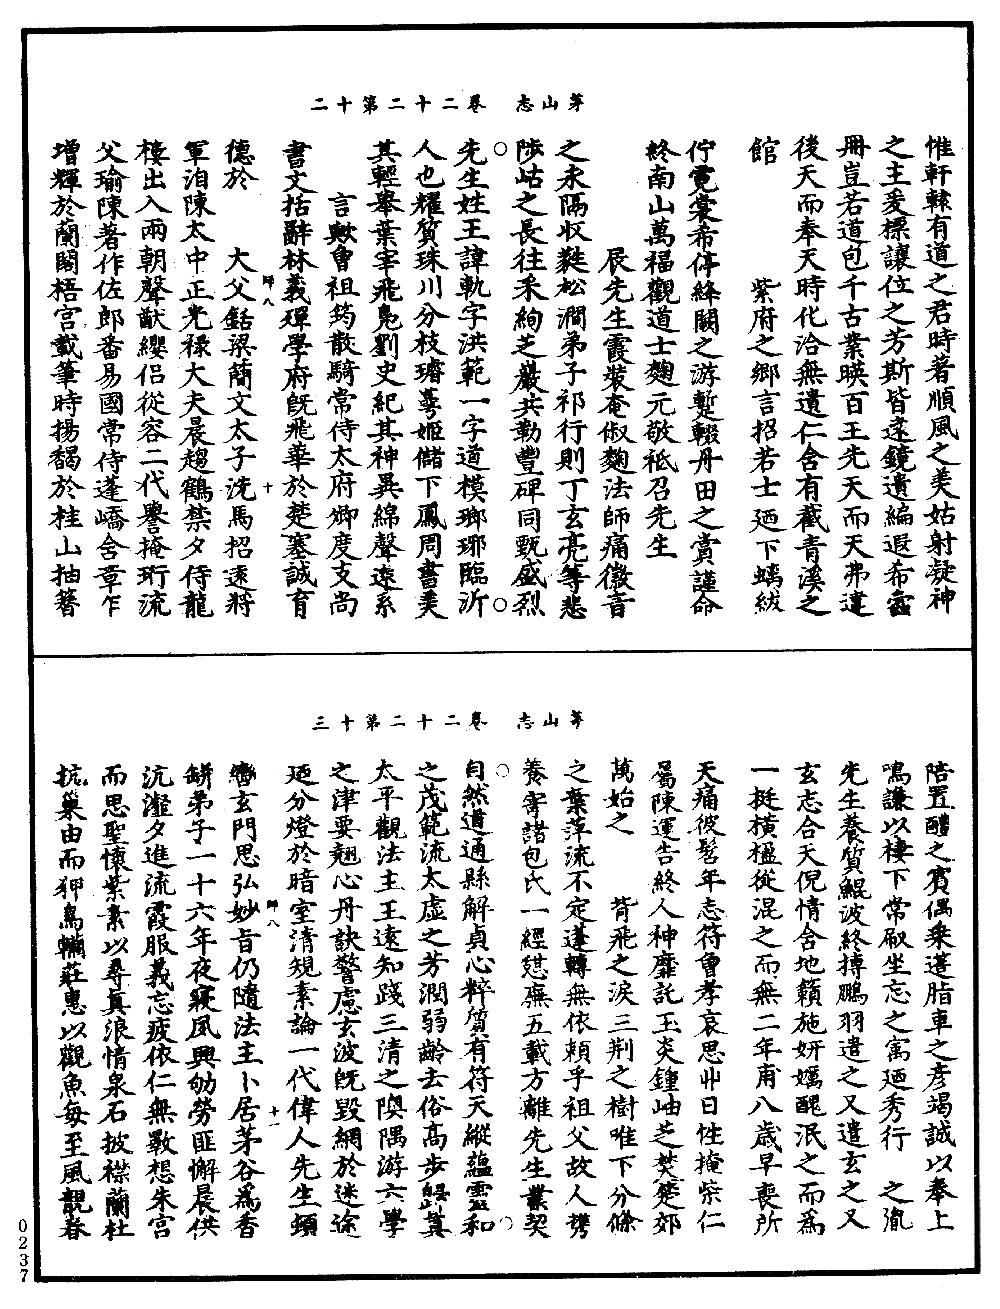 茅山志　卷二十二第十二
惟軒轅有道之君時著順風之美姑射凝神
之主爰摽讓位之芳斯皆遠鏡遺編遐希靈
冊豈若道包千古業暎百王先天而天弗違
後天而奉天時化洽無遺仁含有截青溪之
館　　　紫府之鄉言招若士廼下蠙紱
佇霓裳希停絳闕之游蹔輟丹田之賞謹命
終南山萬福觀道士麴元敬祗召先生
辰先生霞裝奄俶麴法師痛徽音
之未隔収㲯松澗弟子祁行則丁玄亮等悲
陟岵之長往采絢芝巖共勒豐碑同甄盛烈
先生姓王諱軌字洪範一字道模瑯琊臨沂
人也耀質珠川分枝璿萼姬儲下鳳周書美
其輕舉葉宰飛鳧劉史紀其神異綿聲遠系
言歟曾祖筠散騎常侍太府卿度支尚
書文括辭林義殫學府旣飛華於楚塞誠育
德於　大父銛梁簡文太子洗馬招遠將
軍洎陳太中正光禄大夫晨趨鶴禁夕侍龍
樓出入兩朝聲猷纓侶從容二代譽掩珩流
父瑜陳著作佐郎番易國常侍蓬嶠含章乍
增輝於蘭閣梧宫載筆時揚馤於桂山抽著
師八
十
茅山志　卷二十二第十三
陪置醴之賓偶乗蓬脂車之彦竭誠以奉上
鳴謙以棲下常㕞坐忘之寓廼秀行　之胤
先生養質鯤波終摶鵬羽遣之又遣玄之又
玄志合天倪情含地籟施妍嫫醜泯之而爲
一挺横楹從混之而無二年甫八歳早喪所
天痛彼髫年志符曾孝哀思丱日性掩柴仁
屬陳運告終人神靡託玉炎鍾岫芝焚楚郊
萬始之　背飛之淚三荆之樹唯下分條
之葉萍流不定蓬轉無依頼乎祖父故人攜
養寄諸包氏一經愆廡五載方離先生叢契
自然道通縣解貞心粹質有符天縱蘊靈和
之茂範流太虚之芳潤弱齡去俗高步
太平觀法主王遠知踐三清之隩隅游六學
之津要翹心丹訣警慮玄波旣毀網於迷途
廼分燈於暗室清規素論一代偉人先生頓
轡玄門思弘妙旨仍隨法主卜居茅谷爲香
缾弟子一十六年夜寢夙興劬勞匪懈晨供
沆瀣夕進流霞服義忘疲依仁無斁想朱宫
而思聖懷紫素以尋真浪情泉石披襟蘭杜
抗巢由而狎鳥輔莊惠以觀魚每至風靚春
師八
十一
0237